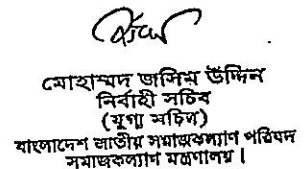 মোহাম্মদ জসিম উদ্দিন
নির্বাহী সচিব
(যুগ্ম সচিব)
বাংলাদেশ জাতীয় সমাজকল্যাণ পরিষদ
সমাজকল্যাণ মন্ত্রণালয়।